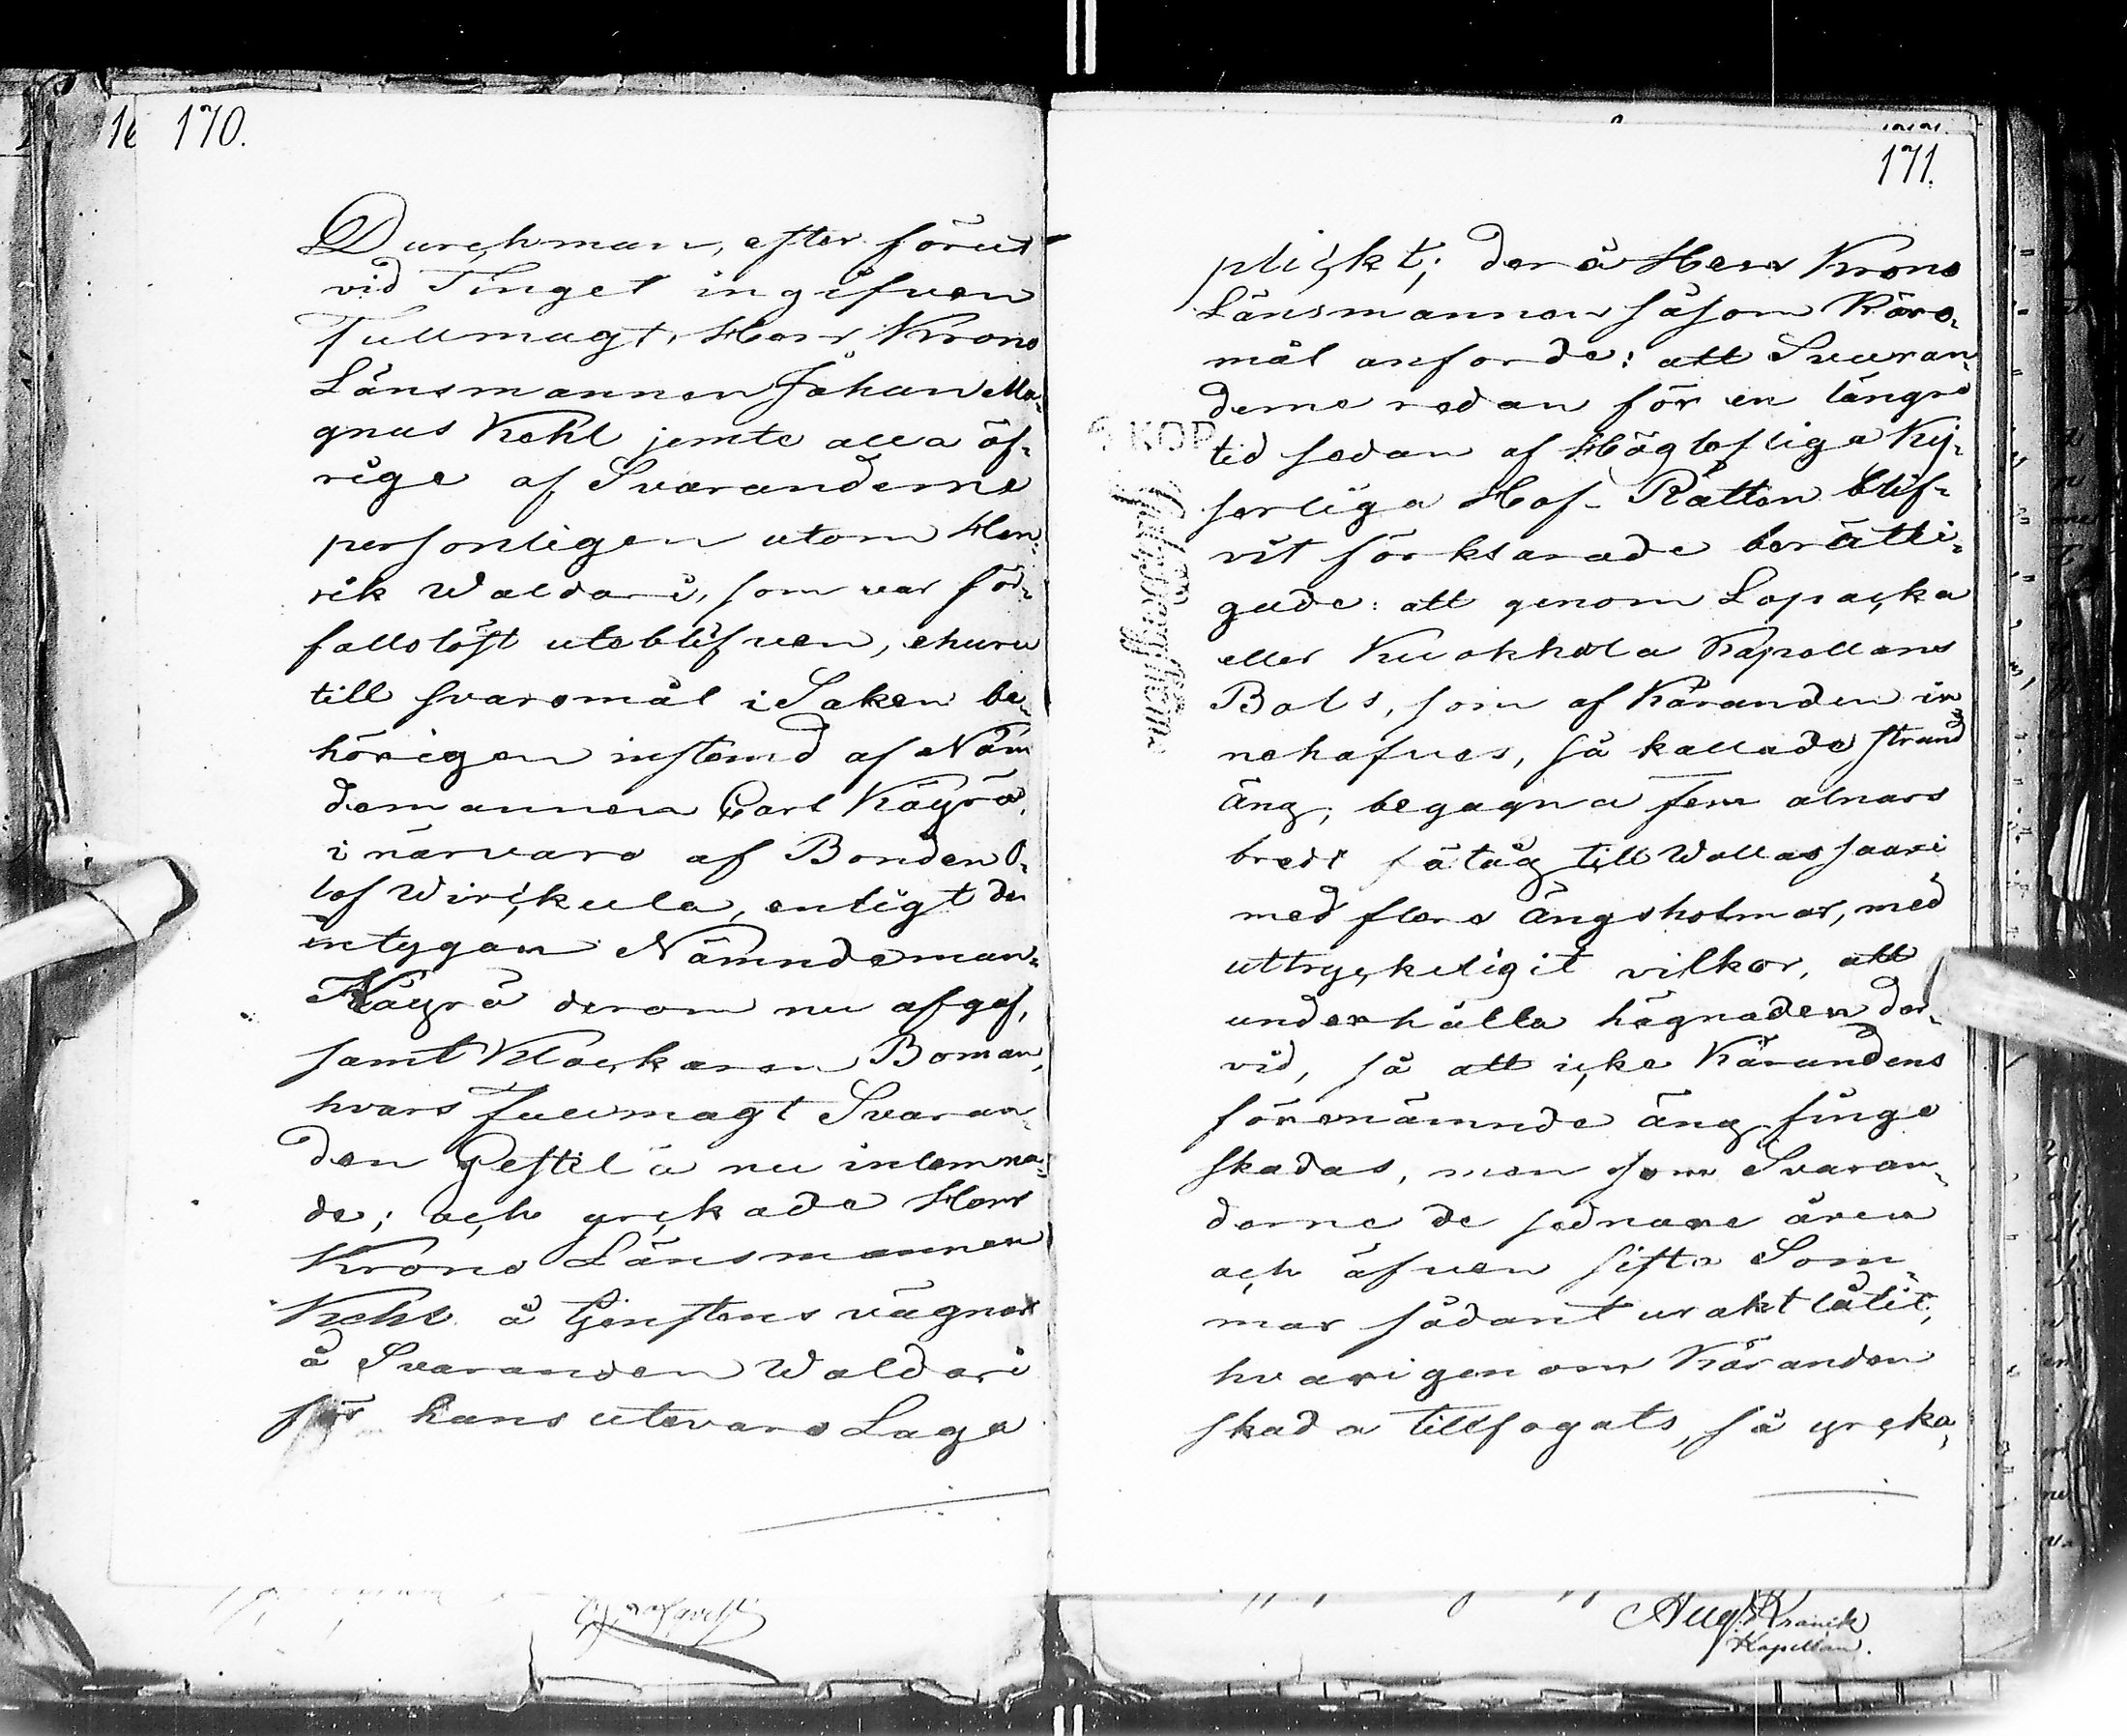 170.
Durchman, efter förut
vid Tinget ingifven
Fullmagt, Herr Krono
Länsmannen Johan Ma-
gnus Kehl jemte alla öf-
rige af Svaranderne
personligen utom Hen-
rik Waldari, som var för-
fallolöst utebliſven, ehuru
till svaromål i Saken be-
hörigen instemd af Näm
demannen Carl Käyrä,
i närvaro af Bonden O-
lof Wirckula, enligt det
intygan Nämndeman
Käyrä derom nu afgaf,
samt Klockaren Boman,
hvars Fullmagt Svaran-
den Pestilä nu inlemna-
de; och yrckade Herr
Krono Länsmannen
Kehl å Tjenstens vägnar
å Svaranden Waldari
för hans utevaro Laga
171.
plickt; derå Herr Krono
Länsmannen såsom Käro-
mål anförde: att Svaran-
derne redan för en längre
tid sedan af Höglofliga Kej-
serliga Hof-Rätten blif-
vit förklarade berätti-
gade: att genom Lopacka
eller Kuokkola Kapellans
Bols, som af Käranden in
nehafves, så kallade strand
äng, begagna fem alnars
bredt fätåg till Wallassaari
med flere ängsholmar, med
uttryckeligit vilkor, att
underhålla hägnaden der-
vid, så att icke Kärandens
förenämnde äng finge
skadas, men som Svaran-
derne de sednare åren
och äfven sista Som-
mar sådant uraktlåtit,
hvarigenom Käranden
skada tillfogats, så yrcka-
KOP
Aug. Kranck
Kapellan.